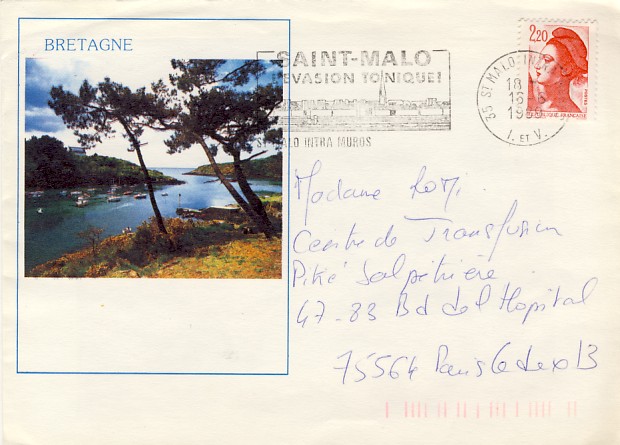 BRETAGNE
SAINT-MALO
L'EVASION TONIQUE!
ST MALO INTRA MUROS
35 ST MALO-INTRA
18 H
16
19
I. ET V.
2,20
POSTES
REPUBLIQUE FRANÇAISE
Madame Romi
Centre de Transfusion
Pitié Salpétrière
47-83 Bd de l'Hopital
75564 Paris Cedex 13